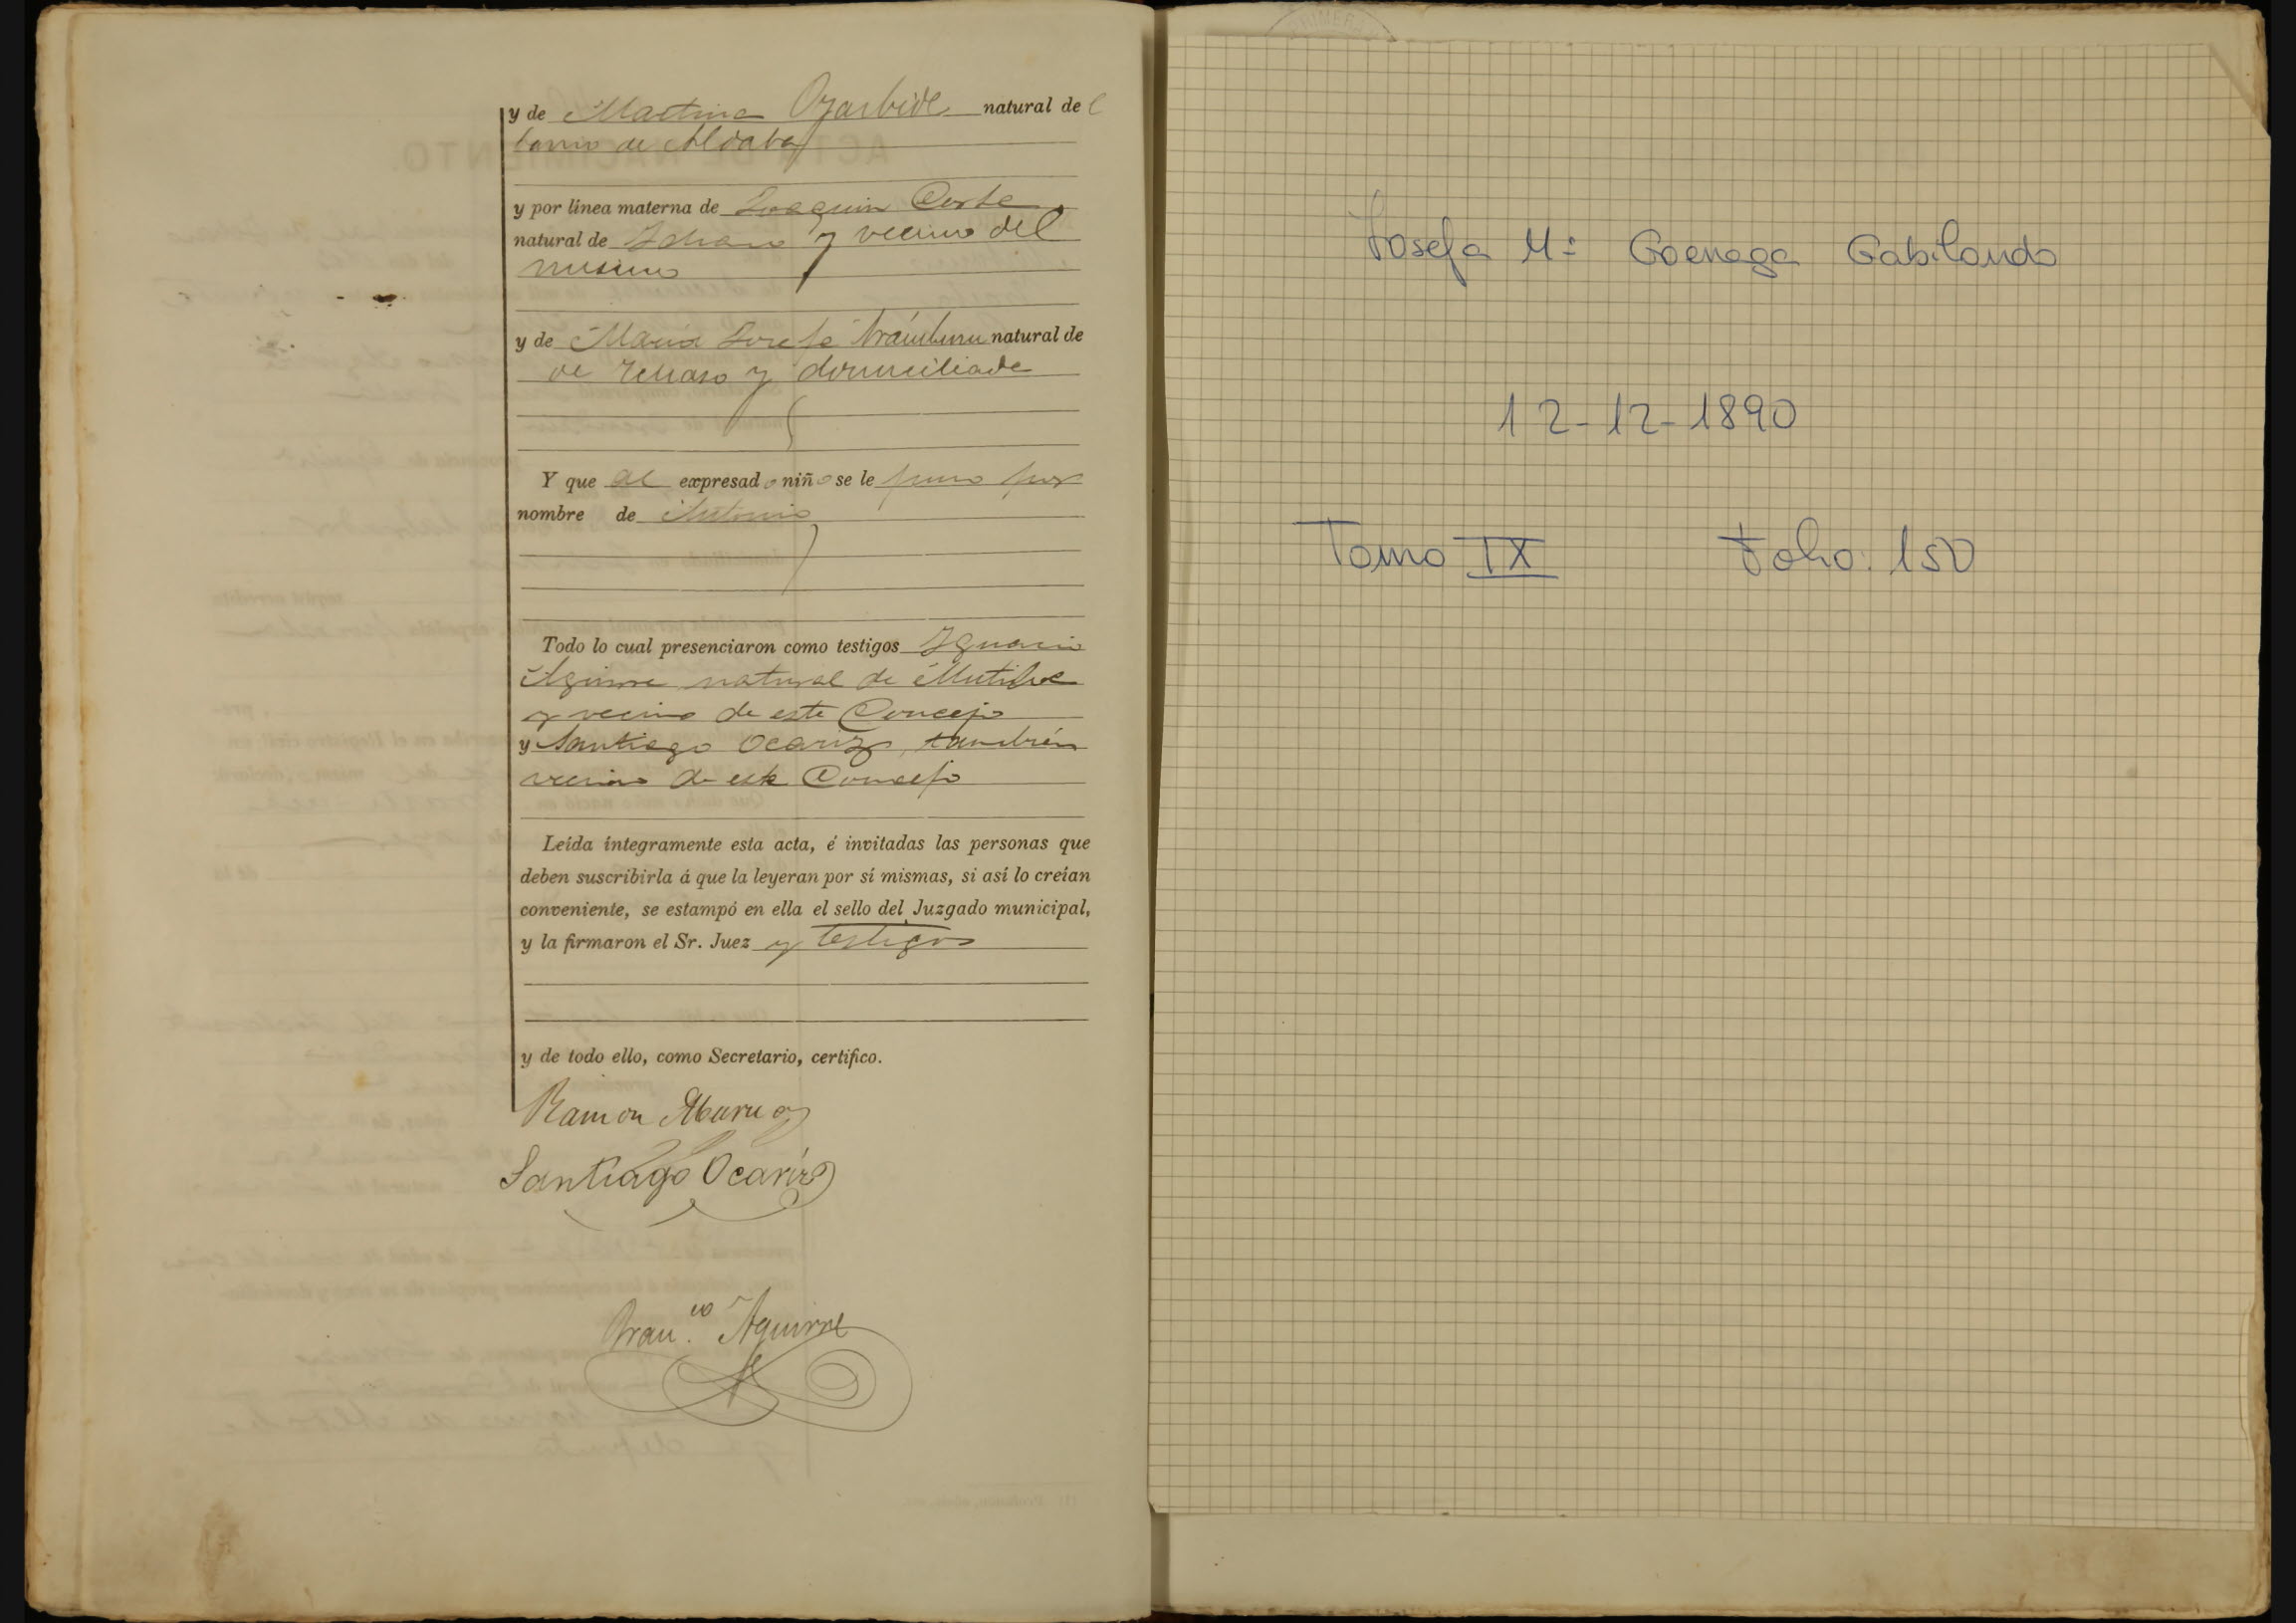 y de Martina Ozarbide natural del
barrio de Aldaba
y por línea materna de Joaquin Corte
natural de y vecino del
mismo
y de María Josefa Aramburu natural de
de y domiciliada
Y que al expresado niño se le puso por
nombre de Antonio
Todo lo cual presenciaron como testigos Ignacio
Aguirre natural de Mutiloa
y vecino de este Concejo
y Santiago Ocariz, también
vecino de este Concejo
Leída íntegramente esta acta, é invitadas las personas que
deben suscribirla á que la leyeran por sí mismas, si así lo creían
conveniente, se estampó en ella el sello del Juzgado municipal,
y la firmaron el Sr. Juez y testigos
y de todo ello, como Secretario, certifico.
Ramon
Santiago Ocariz
Fran.co Aguirre
PRIMERA
Josefa Mª Goenaga Gabilondo
12-12-1890
Tomo IX Folio: 150